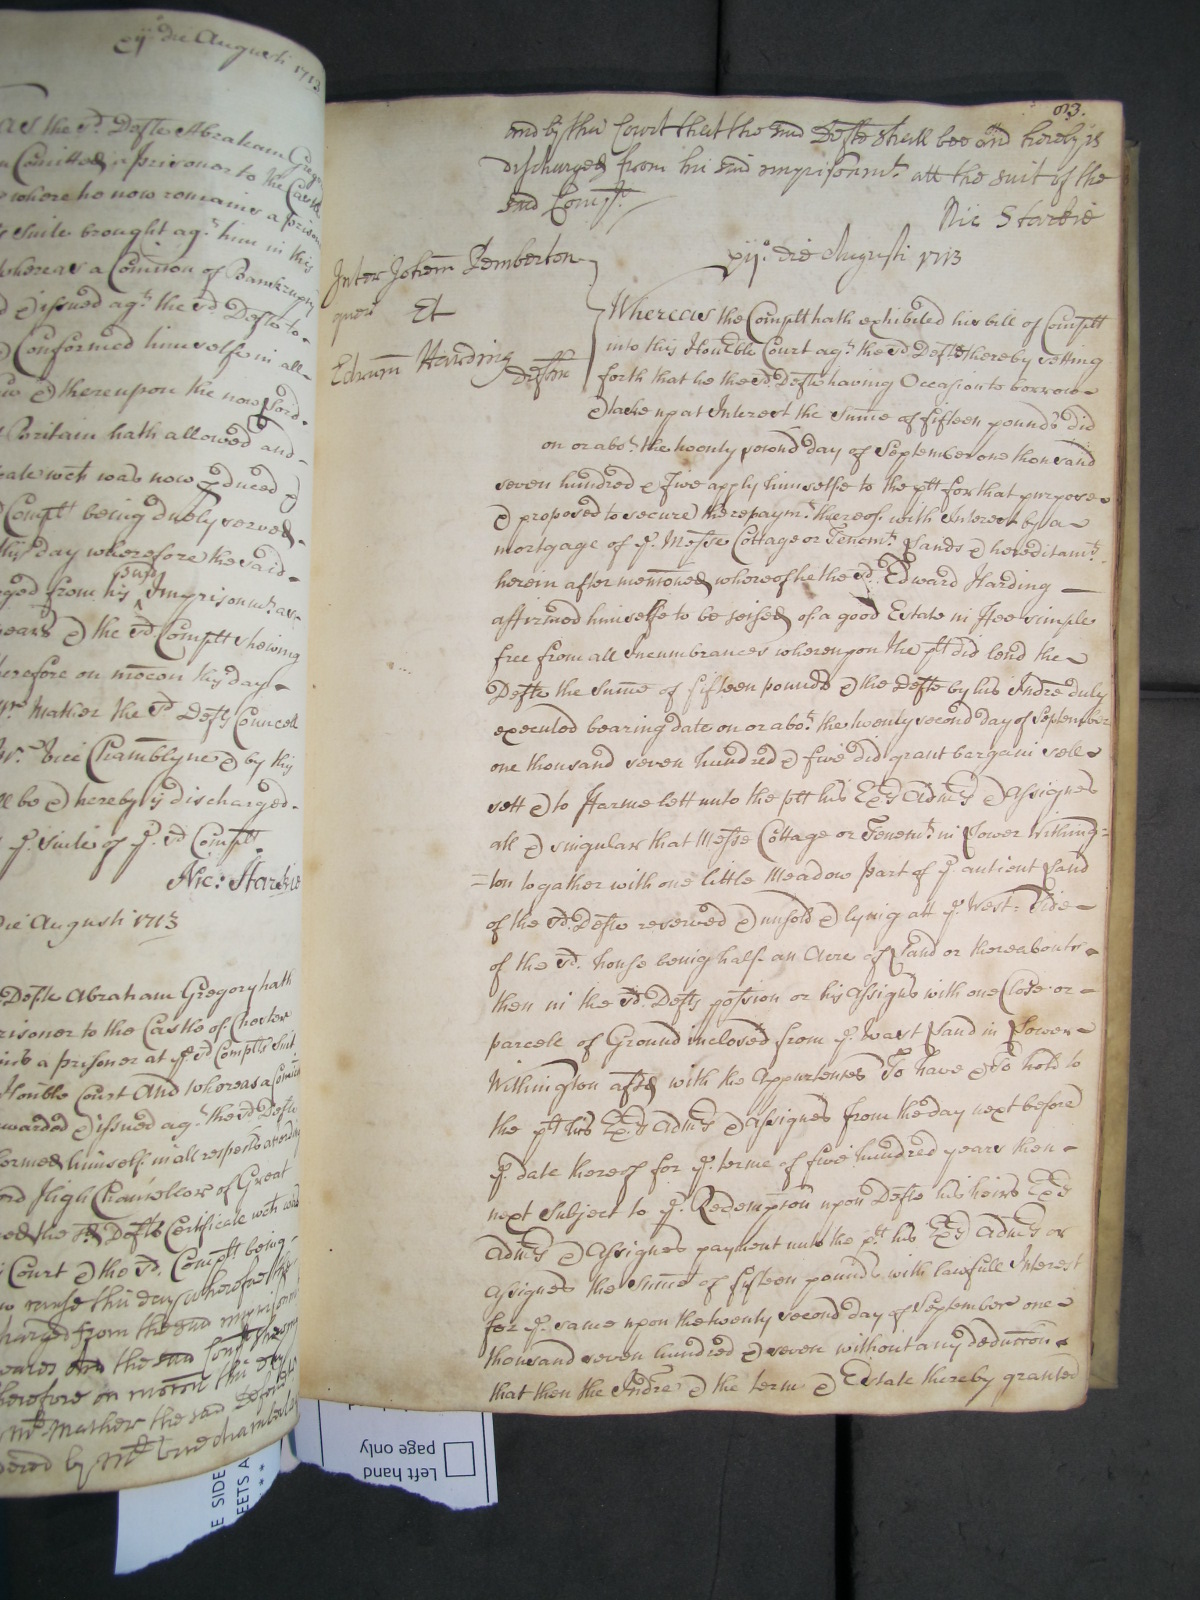 xij die Augusti 1713
as the sd. Defte Abraham Grego
Comitted a prisoner to the Castle
where he now remains a prison
Suite brought agt. him in this
whereas a Comicon of Banckrupt
& issued agt. the sd. Defte to
Conformed himselfe in all
& thereupon the now Lord
Britain hath allowed and
cate wch was now pduced &
Complt being duely served
this day wherefore the said
ged from his said Imprisonmt. as
peard & the sd. Complt shewing
herefore on mocon this day
Mr. Mather the sd. Defts Councell
Mr. Vice Chamblyne & by this
ll be & hereby is discharged
ye. Suite of ye. sd Complt.
Nic: Starkie
Die Augusti 1713
Defte Abraham Gregory hath
risoner to the Castle of Chester
a prisoner at ye sd Complts Suit
Honble Court And whereas a Comicon
awarded & issued agt. the sd Defte
formed himselfe in all respects according
Lord High Chancellor of Great
the sd Defts Certificate wch was
Court & the sd. Complt being
cause this day wherefore the
harged from the said imprisonmt
the said Complt shewing
herefore on motion this day
Mr. Mather the said Defts
dered by Mr. vice chamberlain
83.
and by this Court that the said Defte shall bee and hereby is
discharged from his said imprisonmt. att the suit of the
said Complt.
Nic Starkie
xij.o die Augusti 1713
Inter Johem Pemberton
quer
Et
Edrum Harding
Deften
Whereas the Complt hath exhibited his bill of Complt
into this Honble Court agt. the sd Defte thereby setting
forth that he the sd. Defte having Occasion to borrow
& take up at Interest the sume of fifteen pounds did
on or abot. the twenty second day of September one thousand
seven hundred & five apply himselfe to the plt for that purpose
& proposed to secure the repaymt. thereof with Interest by a
mortgage of ye. Messe Cottage or Tenemt. Lands & hereditamts.
herein after menconed whereof he the sd. Edward Harding
affirmed himselfe to be seised of a good Estate in ffee simple
free from all Incumbrances whereupon the plt did lend the
Defte the sume of fifteen pounds & the Defte by his Indre duly
executed bearing date on or abot. the twenty second day of September
one thousand seven hundred & five did grant bargain sell
sett & to ffarme lett unto the plt his Exrs Admrs & Assignes
all & singular that Messe Cottage or Tenemt. in Lower Withing=
=ton togather with one little Meadow part of ye antient Land
of the sd. Defte reserved & unsold & lying att ye. West= side
of the sd. house being half an Acre of Land or thereabouts
then in the sd. Defts possion or his Assigns with one Close or
parcell of Ground inclosed from ye. Wast Land in Lower
Withington afsd with the Appurtenes To have & To hold to
the plt his Exrs Admrs & Assignes from the day next before
ye. date thereof for ye. terme of five hundred years then
next subject to ye. Redempcon upon Defte his heirs Exrs
Admrs & Assignes payment unto the plt his Exrs Admrs or
Assignes the sume of fifteen pounds with lawfull Interest
for ye. same upon the twenty second day of September one
thousand seven hundred & seven without any deduccon
that then the Indre & the term & Estate thereby granted
Left hand
page only
E SIDE
EETS A